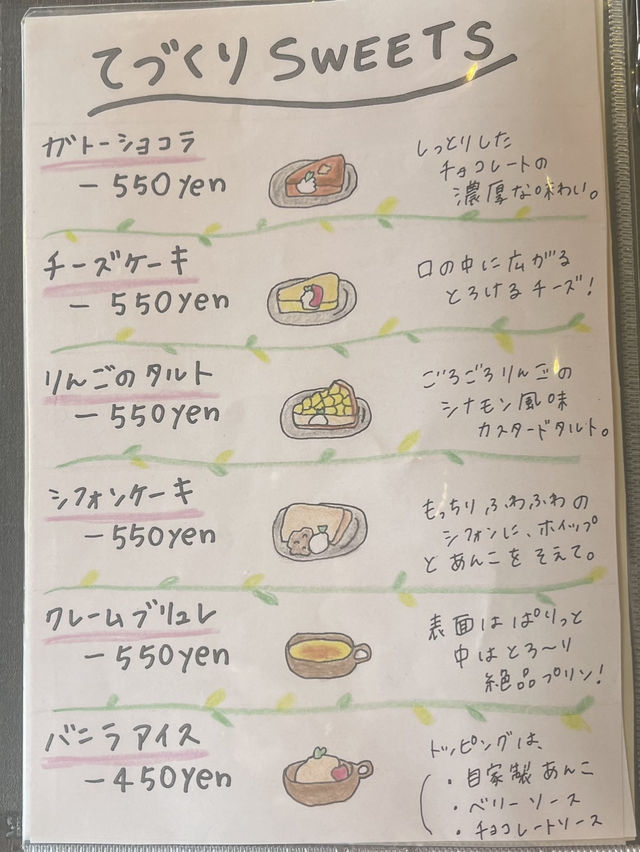 てづくりSWEETS
ガトーショコラ
-550yen
しっとりした
チョコレートの
濃厚な味わい。
チーズケーキ
-550yen
口の中に広がる
とろけるチーズ!
りんごのタルト
-550yen
ごろごろりんごの
シナモン風味
カスタードタルト。
シフォンケーキ
-550yen
もっちりふわふわの
シフォンに、ホイップ
とあんこをそえて。
クレームブリュレ
-550yen
表面はぱりっと
中はとろ〜り
絶品プリン!
バニラアイス
-450yen
トッピングは、
・自家製あんこ
・ベリーソース
・チョコレートソース